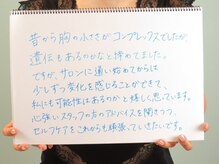 昔から胸の小ささがコンプレックスでしたが、
遺伝もあるのかなと諦めてました。
ですが、サロンに通い始めてからは
少しずつ変化を感じることができて、
私にも可能性はあるのかと嬉しく思っています。
心強いスタッフの方のアドバイスを聞きつつ、
セルフケアをこれからも頑張っていきたいです。